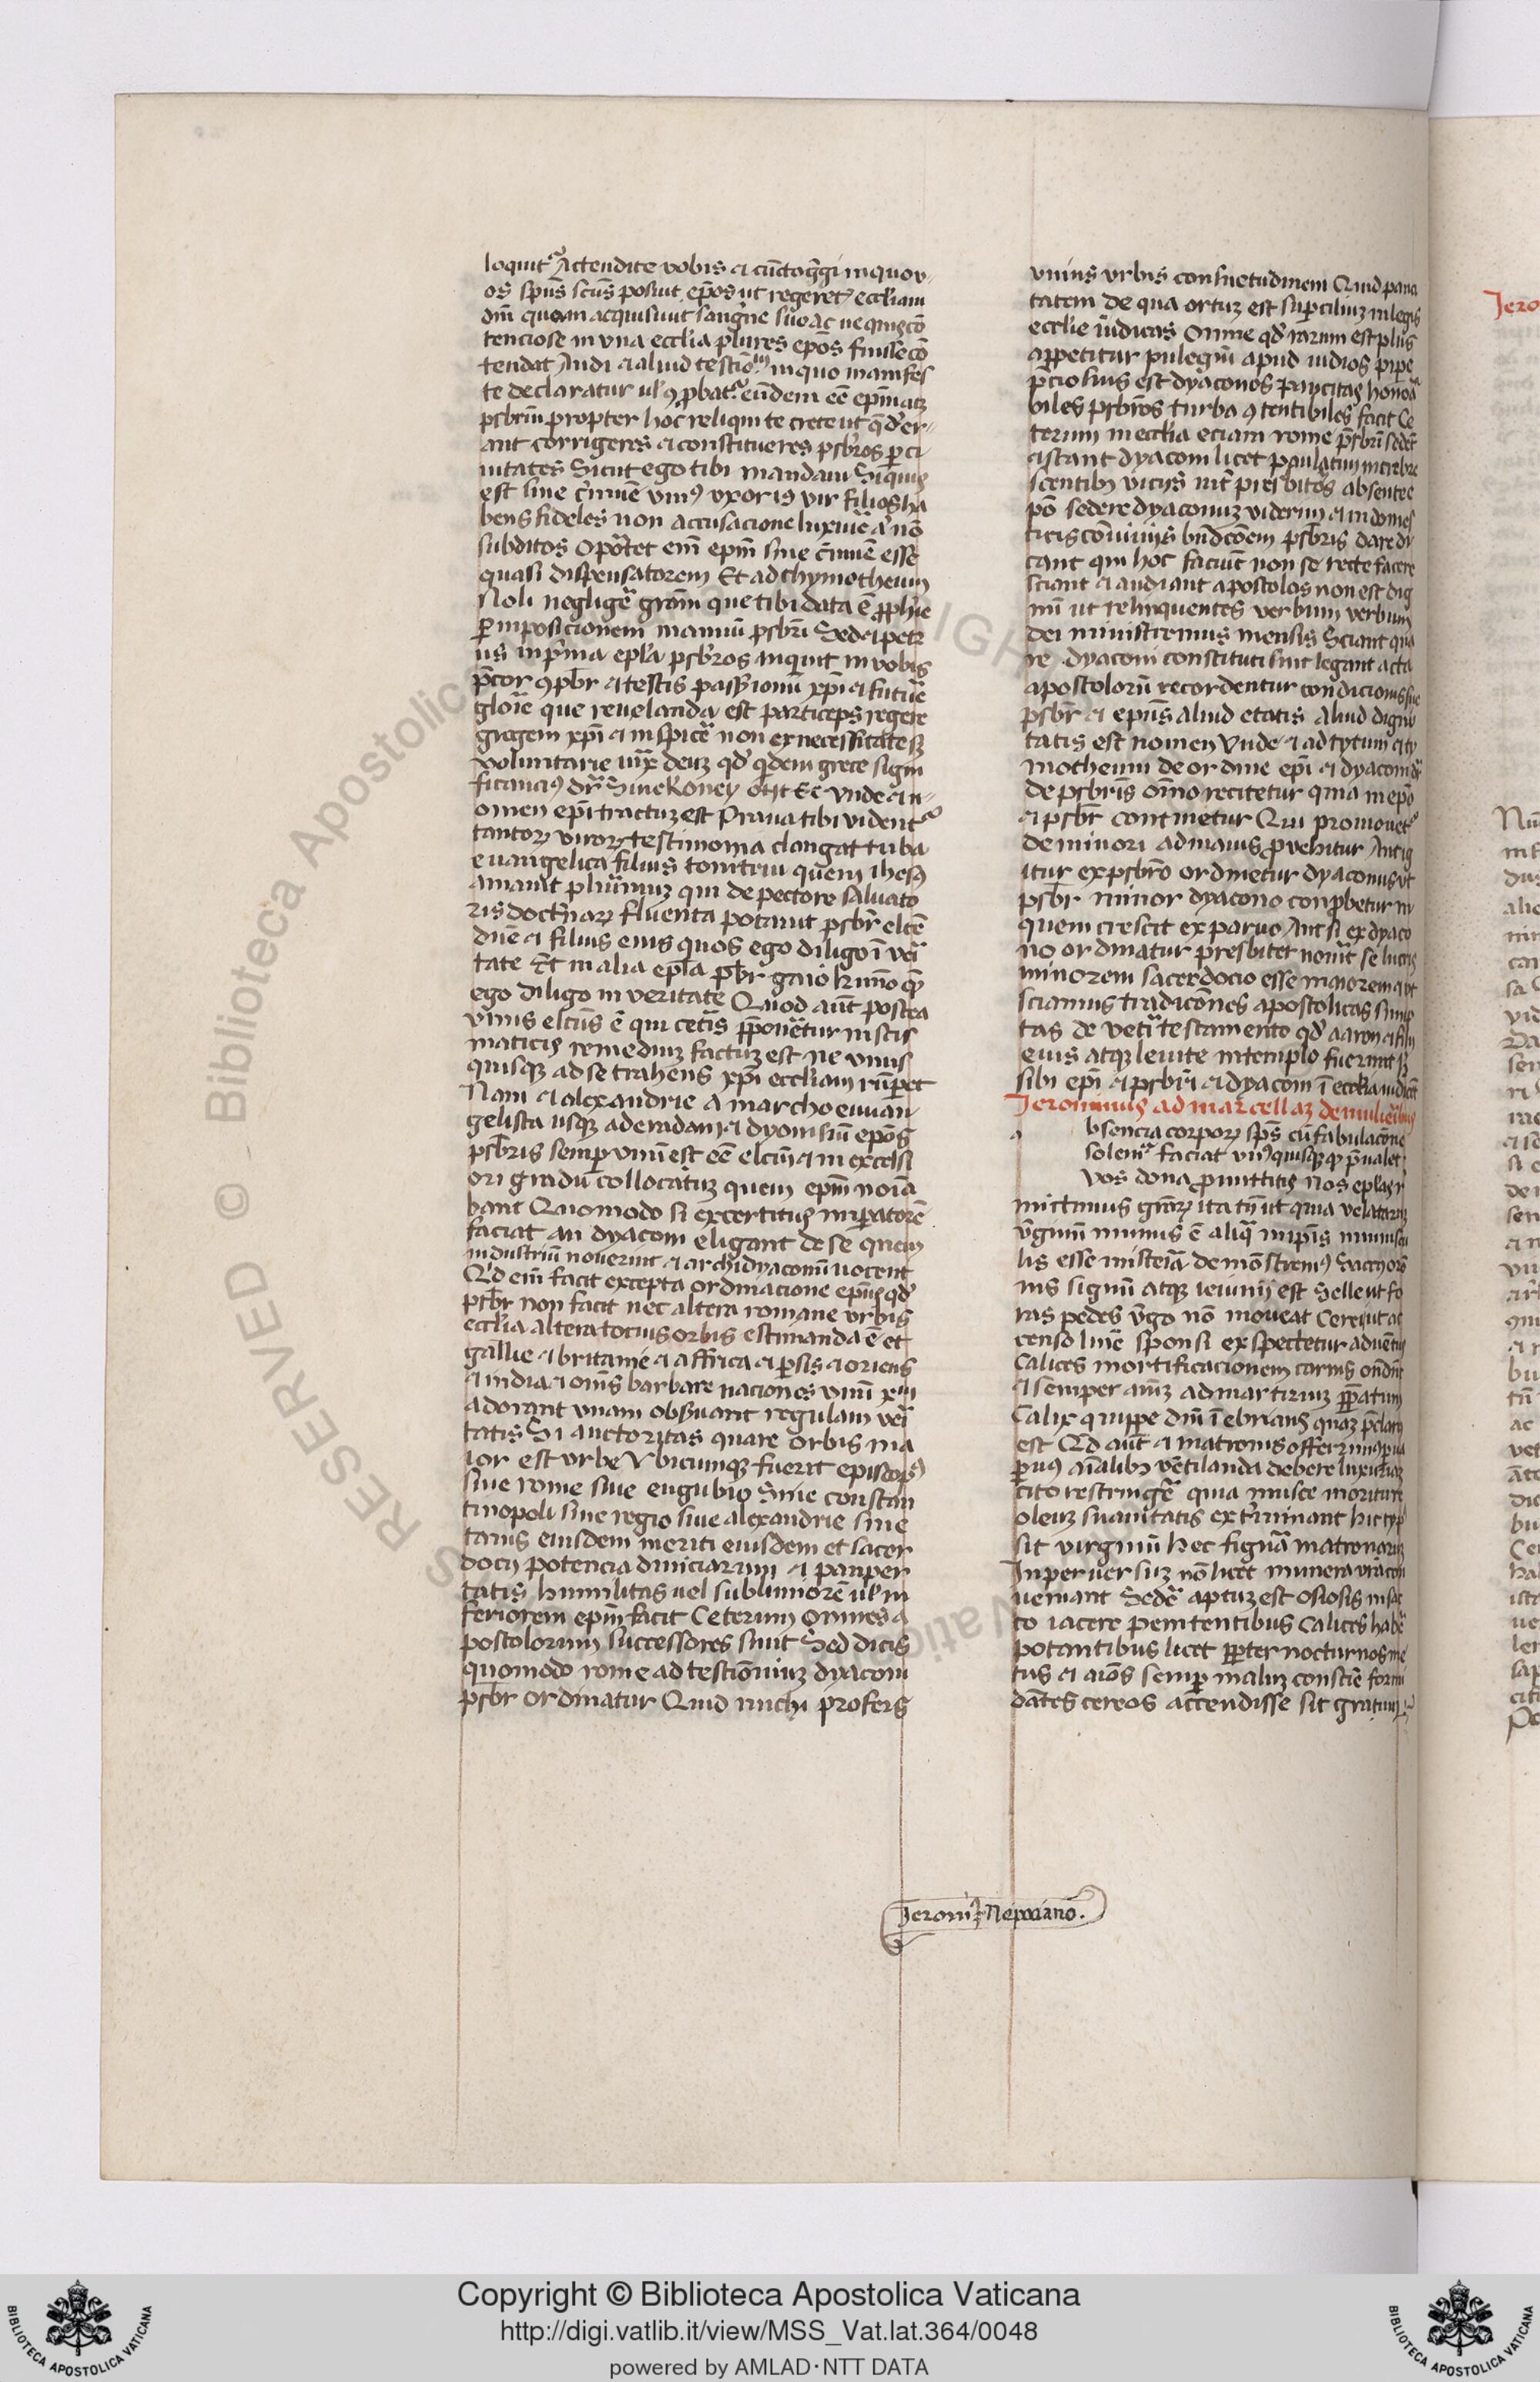 loquit᷑ Attendite vobis et cūcto g̃gi in quo v
os spūs scūs posuit ep̄os ut regeret ecclīam
dn̄i quam acquisiuit sang̃ne suo ac ne quis cō
tenciose in vna ecclīa plures ep̄os fuisse cō
tendat Audi et aliud testīo᷑ in quo manifes
te declaratur ul̄ ꝯprobat᷑ eūdem eē ep̄m atꝫ
pr̄sbrm̄ propter hoc reliqui te crete ut q̄ d̄er
ant corrigeres et constitueres psb̄ros ꝑ ci
uitates Sicut ego tibi mandaui Si quis
est sine c̄mine vniꝰ vxoris vir filios ha
bens fideles non accusacione luxurie a᷑ nō
subditos Oportet em̄ ep̄m sine c̄mine esse
quasi dispensatorem Et ad thymotheum
Noli neglige᷑ grām que tibi data ē ꝓph̄ie
ꝑ inposicionem manuū psbr̄i Sed et petr
us in p̄ma epl̄a psb̄ros inquit in vobis
p̄cor ꝯpb̄r et testis passionū xp̄i et future
glorīe que reuelanda est particeps regere
gregem xp̄i et inspice᷑ non ex necessitate sꝫ
voluntarie iux̄ deuꝫ qd̄ q̄dem grece signi
ficanciꝰ dr̄ Sinekoney otit Et vnde et n
omen ep̄i tractuꝫ est Praua tibi vident᷑
tantoꝝ viroꝝ testimonia clangat tuba
euangelica filius tonitrui quem ihesꝰ
amauit plurimuꝫ qui de pectore saluato
ris doctrinaꝝ fluenta potauit psb̄r elcē
dn̄e et filiis eius quos ego diligo ī veri
tate Et in alia epl̄a pb̄r gaio k̄rīmo quē
ego diligo in veritate Quod aūt postea
vnus elc̄us ē qui cetīs p̄ponetur in scis
maticis remediuꝫ factuꝫ est ne vnus
quisqꝫ ad se trahens xp̄i ecclīam rūperet
Nam et alexandrie a marcho euuan
gelista usqꝫ ad eradam et dyonisiū ep̄os
psb̄ris semper vnū est eē elcūm et in excelsi
ori gradū collocatuꝫ quem ep̄m noīa
bant Quomodo si excertitus imperatorē
faciat an dyaconi eligant de se quem
industriū nouerint et archidyaconū vocent
Qd̄ em̄ facit excepta ordinacione ep̄us qd̄
psb̄r non facit nec altera romane vrbis
ecclīa altera tocius orbis estimanda ē et
gallie et britanie et affrica et ꝑsis et oriens
et india et om̄is barbare naciones vnū xm̄
adorant vnam obseruant regulam veri
tatis Si auctoritas quare orbis ma
ior est vrbe Vbicumqꝫ fuerit episcopꝰ
siue rome siue eugubio Siue constan
tinopoli siue regio siue alexandrie siue
tanis eiusdem meriti eiusdem et sacer
docii potencia diuiciarum et pauper
tatis humilitas uel sublimiorē ul̄ in
feriorem ep̄m facit Ceterum omnes a
postolorum successores sunt Sed dicis
quomodo rome ad testiōniuꝫ dyaconi
psb̄r ordinatur Quid michi profers
vnius vrbis consuetudinem Quid pauci
tatem de qua ortuꝫ est superciliuꝫ in leges
ecclīe iudicas Omne qd̄ rarum est plus
appetitur pulegiū apud indios pipe᷑
p̄ciosius est dyaconos paucitas honora
biles psb̄ros turba ꝯtentibiles facit Ce
terum in ecclīa eciam rome psb̄ri sedēt
et stant dyaconi licet paulatim increbre
scentibꝫ viciis int̄ presbitos absente e
pō sedere dyaconuꝫ viderim et in domes
ticis cōuiuiis bn̄dicōem psb̄ris dare di
cant qui hoc faciūt non se recte facere
sciant et audiant apostolos non est dig
nū ut relinquentes verbum verbum
dei ministremus mensis Sciant qua
re dyaconi constituti sint legant acta
apostolorū recordentur condicionis sue
psb̄r et ep̄us aliud etatis aliud digni
tatis est nomen Vnde et ad tytum et ty
motheum de ordine ep̄i et dyaconi dr̄
de psb̄ris om̄o recitetur quia in ep̄o
et psb̄r continetur Qui promouet᷑
de minori ad maius ꝓvehitur Aut ig
itur ex psb̄ro ordinetur dyaconus ut
psb̄r minor dyacono conꝓbetur in
quem crescit ex paruo Aut si ex dyaco
no ordinatur presbiter nouit se lucris
minorem sacerdocio esse maiorem et ut
sciamus tradicōnes apostolicas sump
tas de vetī testamento qd̄ aaron et filii
eius atqꝫ leuite in templo fuerunt h̄
sibi ep̄i et psb̄ri et dyaconi ī ecclīa vndicēt
Jeronimus ad marcellaꝫ de mulieribus
a bsencia corpoꝝ sp̄us cū fabulacōne
solem᷑ faciat vnꝰquisqꝫ qꝫ p̄ualet
vos dona ꝓmittitis nos eplas r
mittimus grāꝝ ita tn̄ ut quia velataꝝ
v̄ginū munus ē aliq̄ in ip̄is munuscu
lis esse misteriā demōstremꝰ Saccꝰ orō
nis signū atqꝫ ieiunii est Selle ut fo
ras pedes v̄go nō moueat Cerei ut ac
censo lumīe sponsi expectetur aduentꝰ
Calices mortificacionem carnis ondn̄t
et semper aīuꝫ ad martirium paratum
Calix quippe dn̄i ī ebrians quaꝫ p̄clarꝰ
est Qd̄ aūt et matronis offertis muscaria
ꝑuꝰ aīalibꝫ vētilanda debere luxuriaꝫ
cito restringe᷑ quia musce moriture
oleuꝫ suauitatis ext̄minant hic typ
sit virginū hec figura matronarū
In peruersuꝫ nō licet munera vrā con
ueniant Sede᷑ aptuꝫ est osiosis in sac
co iacere penitentibus Calices habe᷑
potantibus licet ꝓpter nocturnos me
tus et aīos semper maluꝫ consciē formi
dātes cereos accendisse sit gratum
Jeronīꝰ Nepociano.
Jero
Copyright © Biblioteca Apostolica Vaticana
http://digi.vatlib.it/view/MSS_Vat.lat.364/0048
powered by AMLAD·NTT DATA
BIBLIOTECA APOSTOLICA VATICANA
BIBLIOTECA APOSTOLICA VATICANA